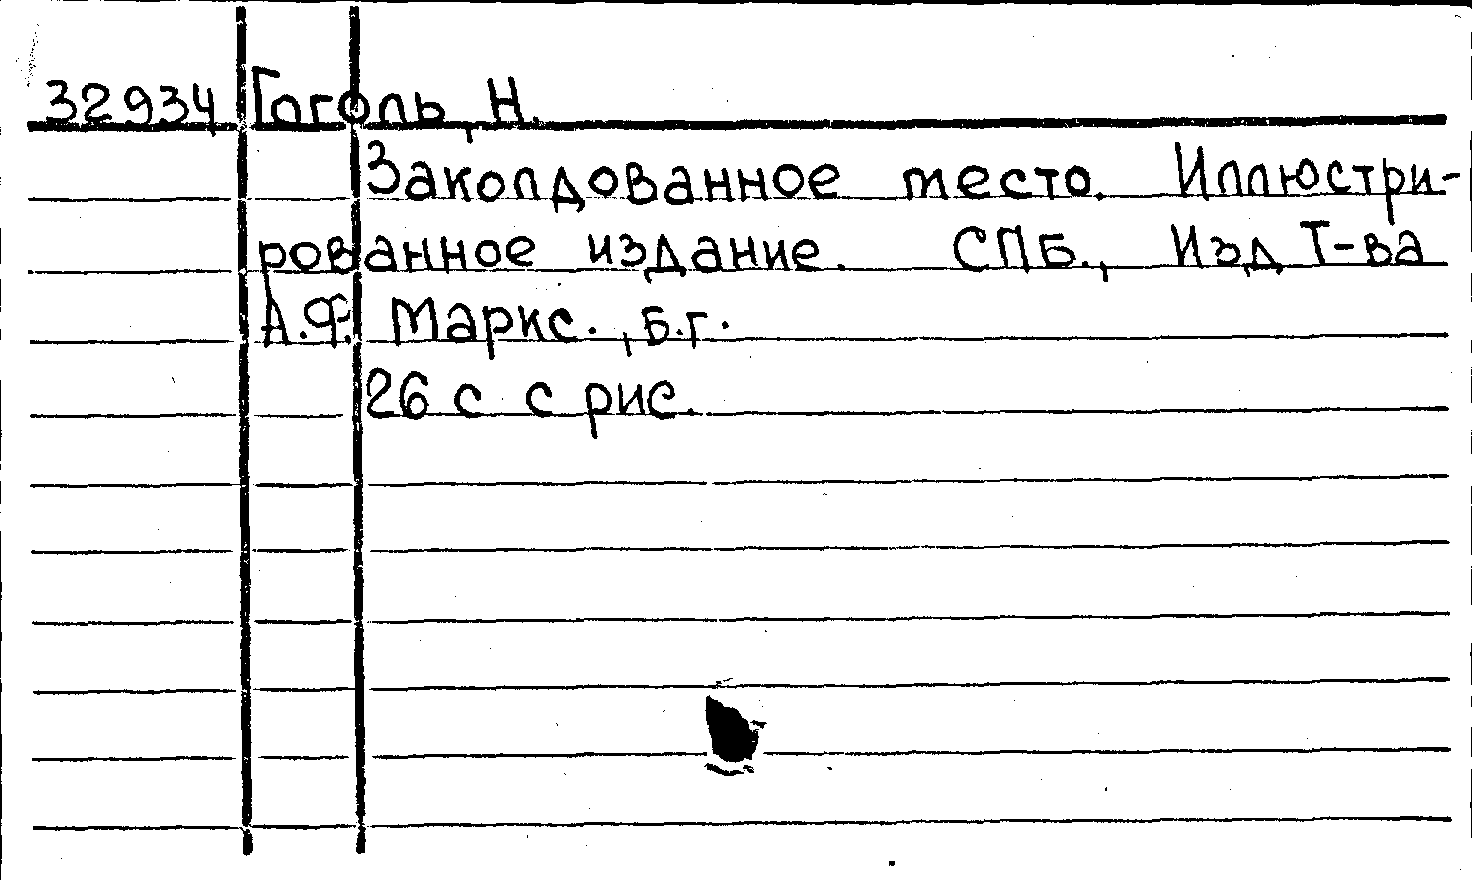 32934 Гоголь, Н.
Заколдованное место. Иллюстри-
рованное издание. СПБ., Изд Т-ва
А.Ф. Маркс., б.г.
26 с с рис.